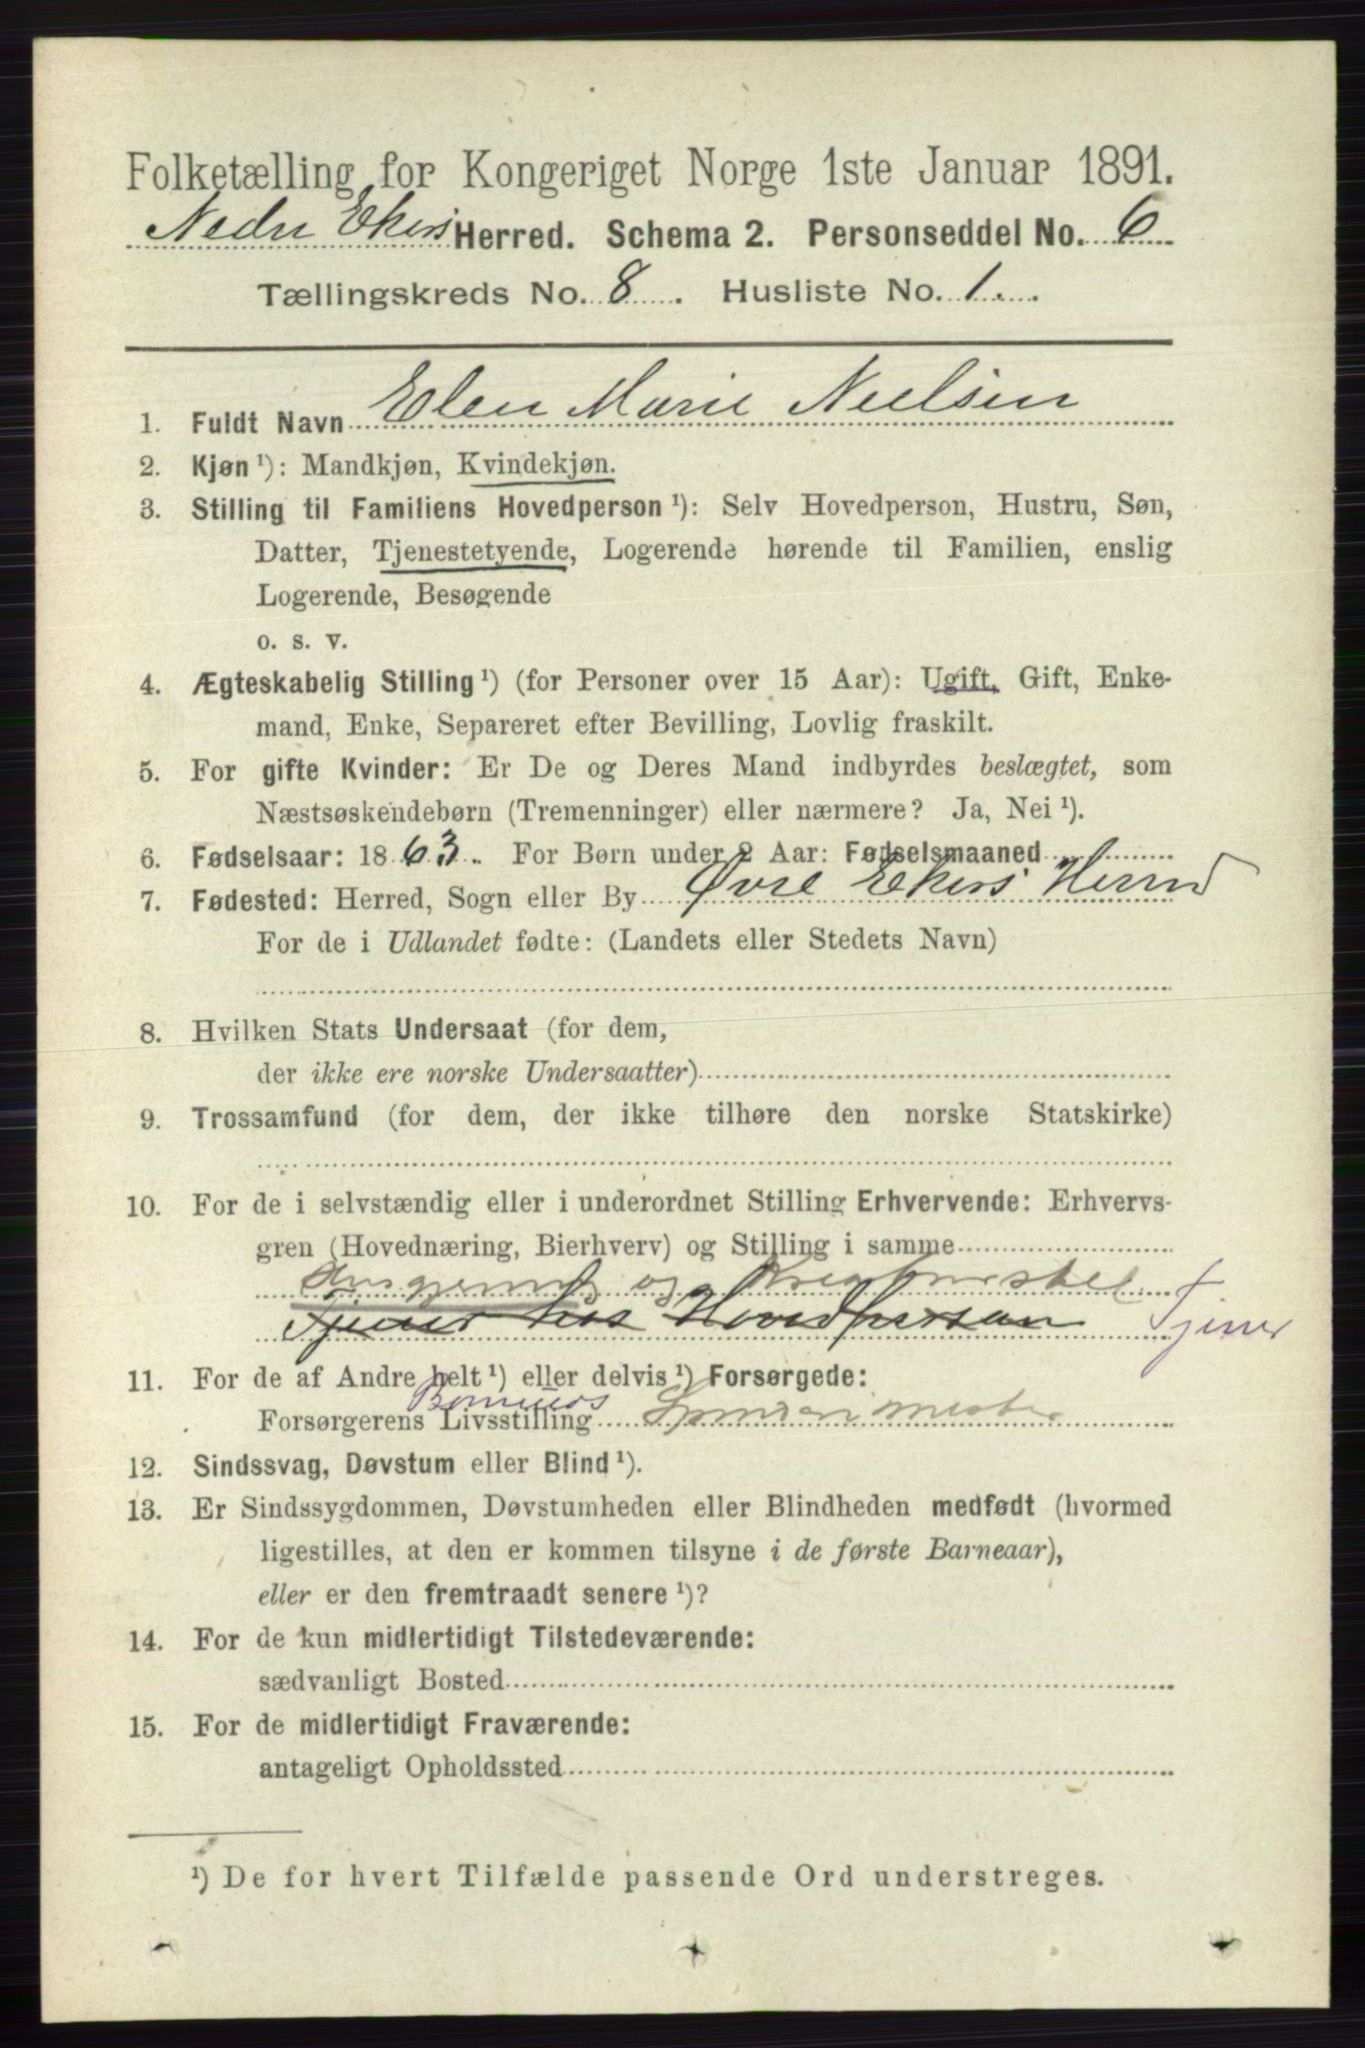 Folketælling for Kongeriget Norge 1ste Januar 1891.
Nedre Ekers Herred. Schema 2. Personseddel No. 6
Tællingskreds No. 8. Husliste No. 1.
1. Fuldt Navn Elen Marie Nielsen
2. Kjøn ¹): Mandkjøn, Kvindekjøn.
3. Stilling til Familiens Hovedperson ¹): Selv Hovedperson, Hustru, Søn,
Datter, Tjenestetyende, Logerende hørende til Familien, enslig
Logerende, Besøgende
o. s. v.
4. Ægteskabelig Stilling ¹) (for Personer over 15 Aar): Ugift, Gift, Enke-
mand, Enke, Separeret efter Bevilling, Lovlig fraskilt.
5. For gifte Kvinder: Er De og Deres Mand indbyrdes beslægtet, som
Næstsøskendebørn (Tremenninger) eller nærmere? Ja, Nei ¹).
6. Fødselsaar: 1863. For Børn under 2 Aar: Fødselsmaaned
7. Fødested: Herred, Sogn eller By Øvre Ekers Herred
For de i Udlandet fødte: (Landets eller Stedets Navn)
8. Hvilken Stats Undersaat (for dem,
der ikke ere norske Undersaatter)
9. Trossamfund (for dem, der ikke tilhøre den norske Statskirke)
10. For de i selvstændig eller i underordnet Stilling Erhvervende: Erhvervs-
gren (Hovednæring, Bierhverv) og Stilling i samme
Husgjerning og Kreaturstel
Tjener hos Hovedperson Tjener
11. For de af Andre helt ¹) eller delvis ¹) Forsørgede:
Forsørgerens Livsstilling mester
12. Sindssvag, Døvstum eller Blind ¹).
13. Er Sindssygdommen, Døvstumheden eller Blindheden medfødt (hvormed
ligestilles, at den er kommen tilsyne i de første Barneaar),
eller er den fremtraadt senere ¹)?
14. For de kun midlertidigt Tilstedeværende:
sædvanligt Bosted
15. For de midlertidigt Fraværende:
antageligt Opholdssted
¹) De for hvert Tilfælde passende Ord understreges.